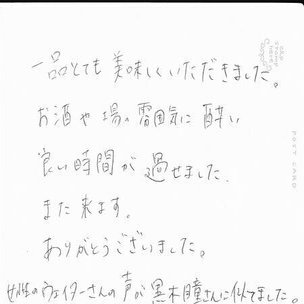 一品とても美味しくいただきました。
お酒や場の雰囲気に酔い
良い時間が過せました。
また来ます。
ありがとうございました。
女性のウェイターさんの声が黒木瞳さんに似てました。
POST CARD